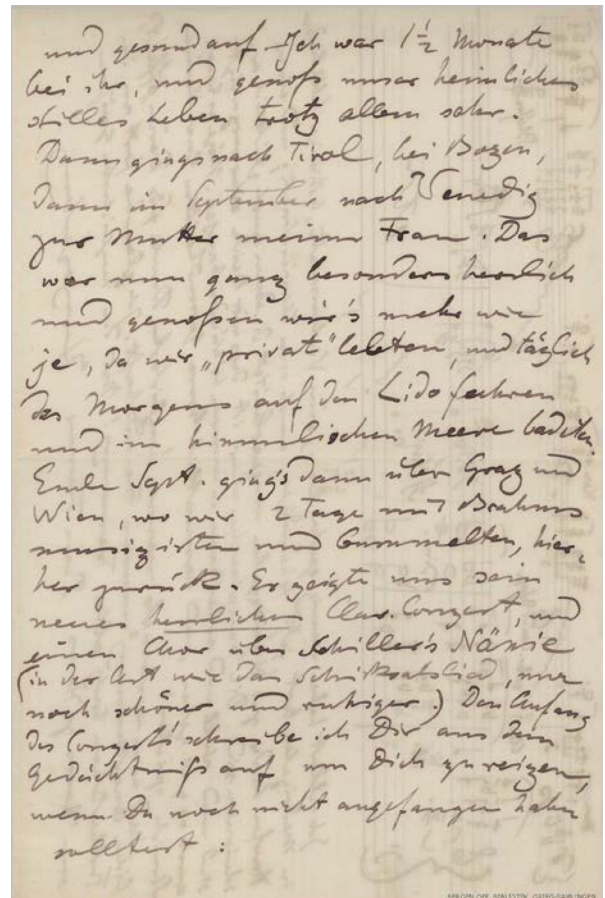 und gesund auf. Ich war 1½ Monate
bei ihr, und genoß unser heimliches
stilles Leben trotz allem sehr.
Dann gings nach Tirol, bei Bozen,
dann im September nach Venedig
zur Mutter meiner Frau. Das
war nun ganz besonders herrlich
und genoßen wir's mehr wie
je, da wir „privat" lebten, und täglich
des Morgens auf den Lido fuhren
und im himmlischen Meere badeten.
Ende Sept. ging's dann über Graz und
Wien, wo wir 2 Tage mit Brahms
musizirten und bummelten, hier-
her zurück. Er zeigte uns sein
neues herrliches Clav. Conzert, und
einen Chor über Schiller's Nänie
(in der Art wie das Schicksalslied, nur
noch schöner und ruhiger.) Den Anfang
des Conzerts schreibe ich Dir aus dem
Gedächtniß auf um Dich zu reizen,
wenn Du noch nicht angefangen haben
solltest :
BERGEN OFF. BIBLIOTEK. GRIEG-SAMLINGEN